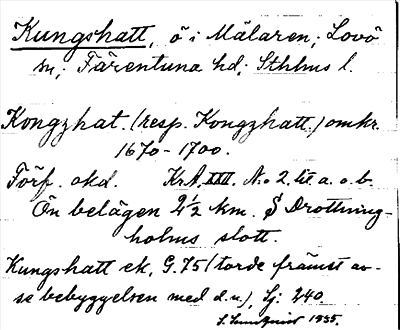 Kungshatt, ö i Mälaren; Lovö
sn; Färentuna hd; Sthlms l.
Kongzhat. (resp. Kongzhatt.) omkr.
1670-1700.
Förf. okd. Kr.A. XXII. N:o 2. lit a. o. b.
Ön belägen 2½ km. S Drottning-
holms slott.
Kungshatt ek, G. 75 (torde främst av-
se bebyggelsen med d. n.), Sj: 240
S. Sundqvist 1935.